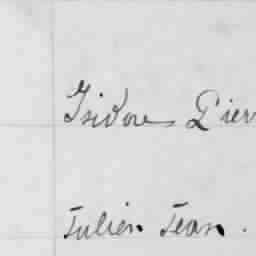 Isidore Pier
Julien Jean.